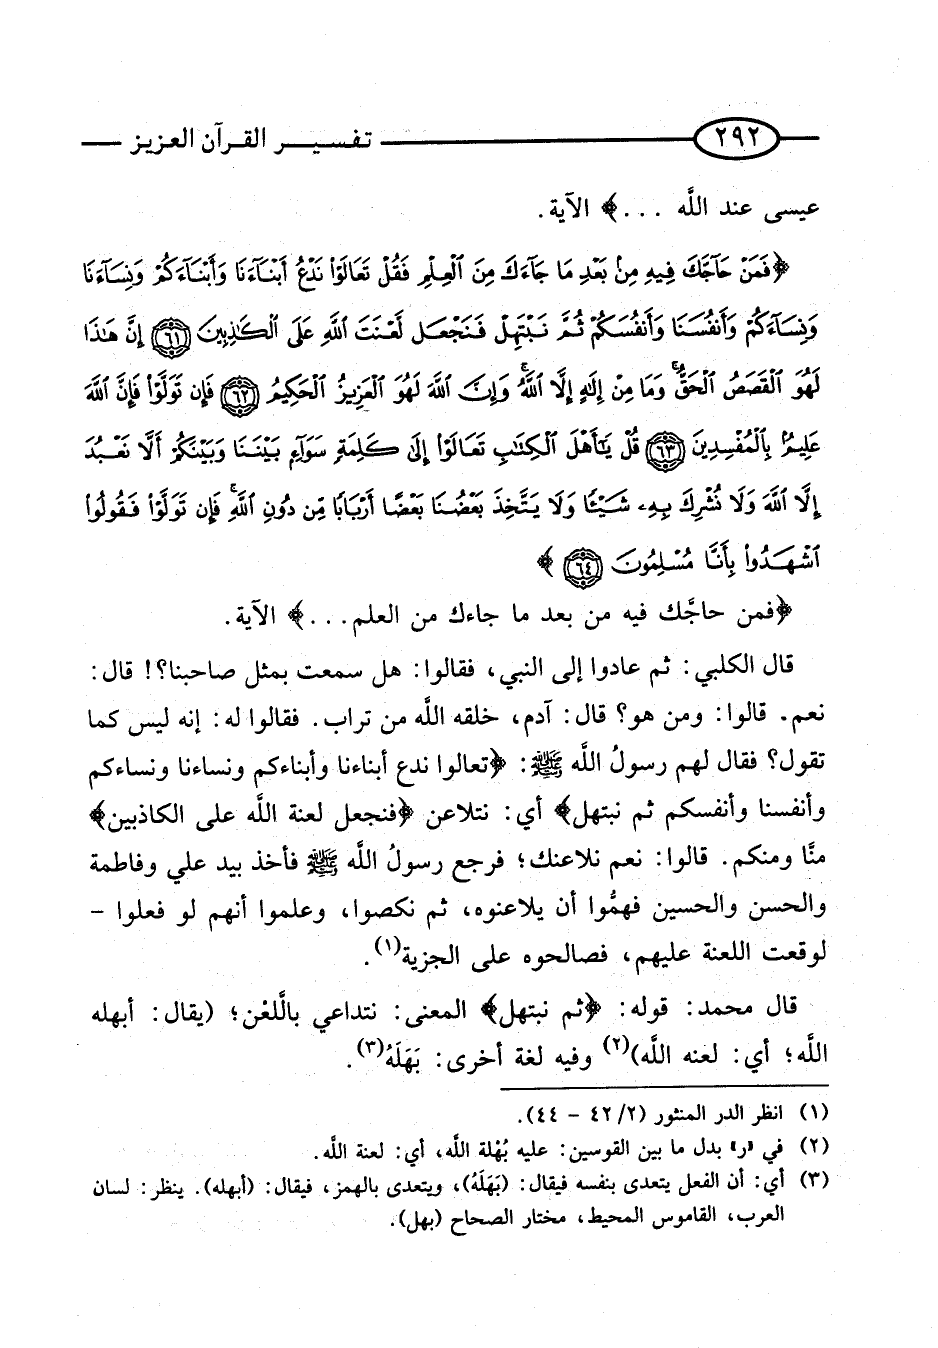 ٢٩٢ تفسير القرآن العزيز
عيسى عند اللَّه ...﴾ الآية.
﴿فَمَنْ حَآجَّكَ فِيهِ مِنۢ بَعْدِ مَا جَآءَكَ مِنَ ٱلْعِلْمِ فَقُلْ تَعَالَوْا۟ نَدْعُ أَبْنَآءَنَا وَأَبْنَآءَكُمْ وَنِسَآءَنَا
وَنِسَآءَكُمْ وَأَنفُسَنَا وَأَنفُسَكُمْ ثُمَّ نَبْتَهِلْ فَنَجْعَل لَّعْنَتَ ٱللَّهِ عَلَى ٱلْكَٰذِبِينَ ٦١ إِنَّ هَٰذَا
لَهُوَ ٱلْقَصَصُ ٱلْحَقُّ ۚ وَمَا مِنْ إِلَٰهٍ إِلَّا ٱللَّهُ ۚ وَإِنَّ ٱللَّهَ لَهُوَ ٱلْعَزِيزُ ٱلْحَكِيمُ ٦٢ فَإِن تَوَلَّوْا۟ فَإِنَّ ٱللَّهَ
عَلِيمٌۢ بِٱلْمُفْسِدِينَ ٦٣ قُلْ يَٰٓأَهْلَ ٱلْكِتَٰبِ تَعَالَوْا۟ إِلَىٰ كَلِمَةٍ سَوَآءٍۭ بَيْنَنَا وَبَيْنَكُمْ أَلَّا نَعْبُدَ
إِلَّا ٱللَّهَ وَلَا نُشْرِكَ بِهِۦ شَيْـًٔا وَلَا يَتَّخِذَ بَعْضُنَا بَعْضًا أَرْبَابًا مِّن دُونِ ٱللَّهِ ۚ فَإِن تَوَلَّوْا۟ فَقُولُوا۟
ٱشْهَدُوا۟ بِأَنَّا مُسْلِمُونَ ٦٤ ﴾
﴿فمن حاجَّك فيه من بعد ما جاءك من العلم...﴾ الآية.
قال الكلبي: ثم عادوا إلى النبي، فقالوا: هل سمعت بمثل صاحبنا؟! قال:
نعم. قالوا: ومن هو؟ قال: آدم، خلقه اللَّه من تراب. فقالوا له: إنه ليس كما
تقول؟ فقال لهم رسولُ اللَّه ﷺ: ﴿تعالوا ندع أبناءنا وأبناءكم ونساءنا ونساءكم
وأنفسنا وأنفسكم ثم نبتهل﴾ أي: نتلاعن ﴿فنجعل لعنة اللَّه على الكاذبين﴾
منَّا ومنكم. قالوا: نعم نلاعنك؛ فرجع رسولُ اللَّه ﷺ فأخذ بيد علي وفاطمة
والحسن والحسين فهمُّوا أن يلاعنوه، ثم نكصوا، وعلموا أنهم لو فعلوا -
لوقعت اللعنة عليهم، فصالحوه على الجزية(١).
قال محمد: قوله: ﴿ثم نبتهل﴾ المعنى: نتداعي باللَّعْن؛ (يقال: أبهله
اللَّه؛ أي: لعنه اللَّه)(٢) وفيه لغة أخرى: بَهَلَهُ(٣).
(١) انظر الدر المنثور (٤٢/٢ - ٤٤).
(٢) في «ر» بدل ما بين القوسين: عليه بُهْلة اللَّه، أي: لعنة اللَّه.
(٣) أي: أن الفعل يتعدى بنفسه فيقال: (بَهَلَهُ)، ويتعدى بالهمز، فيقال: (أبهله). ينظر: لسان
العرب، القاموس المحيط، مختار الصحاح (بهل).